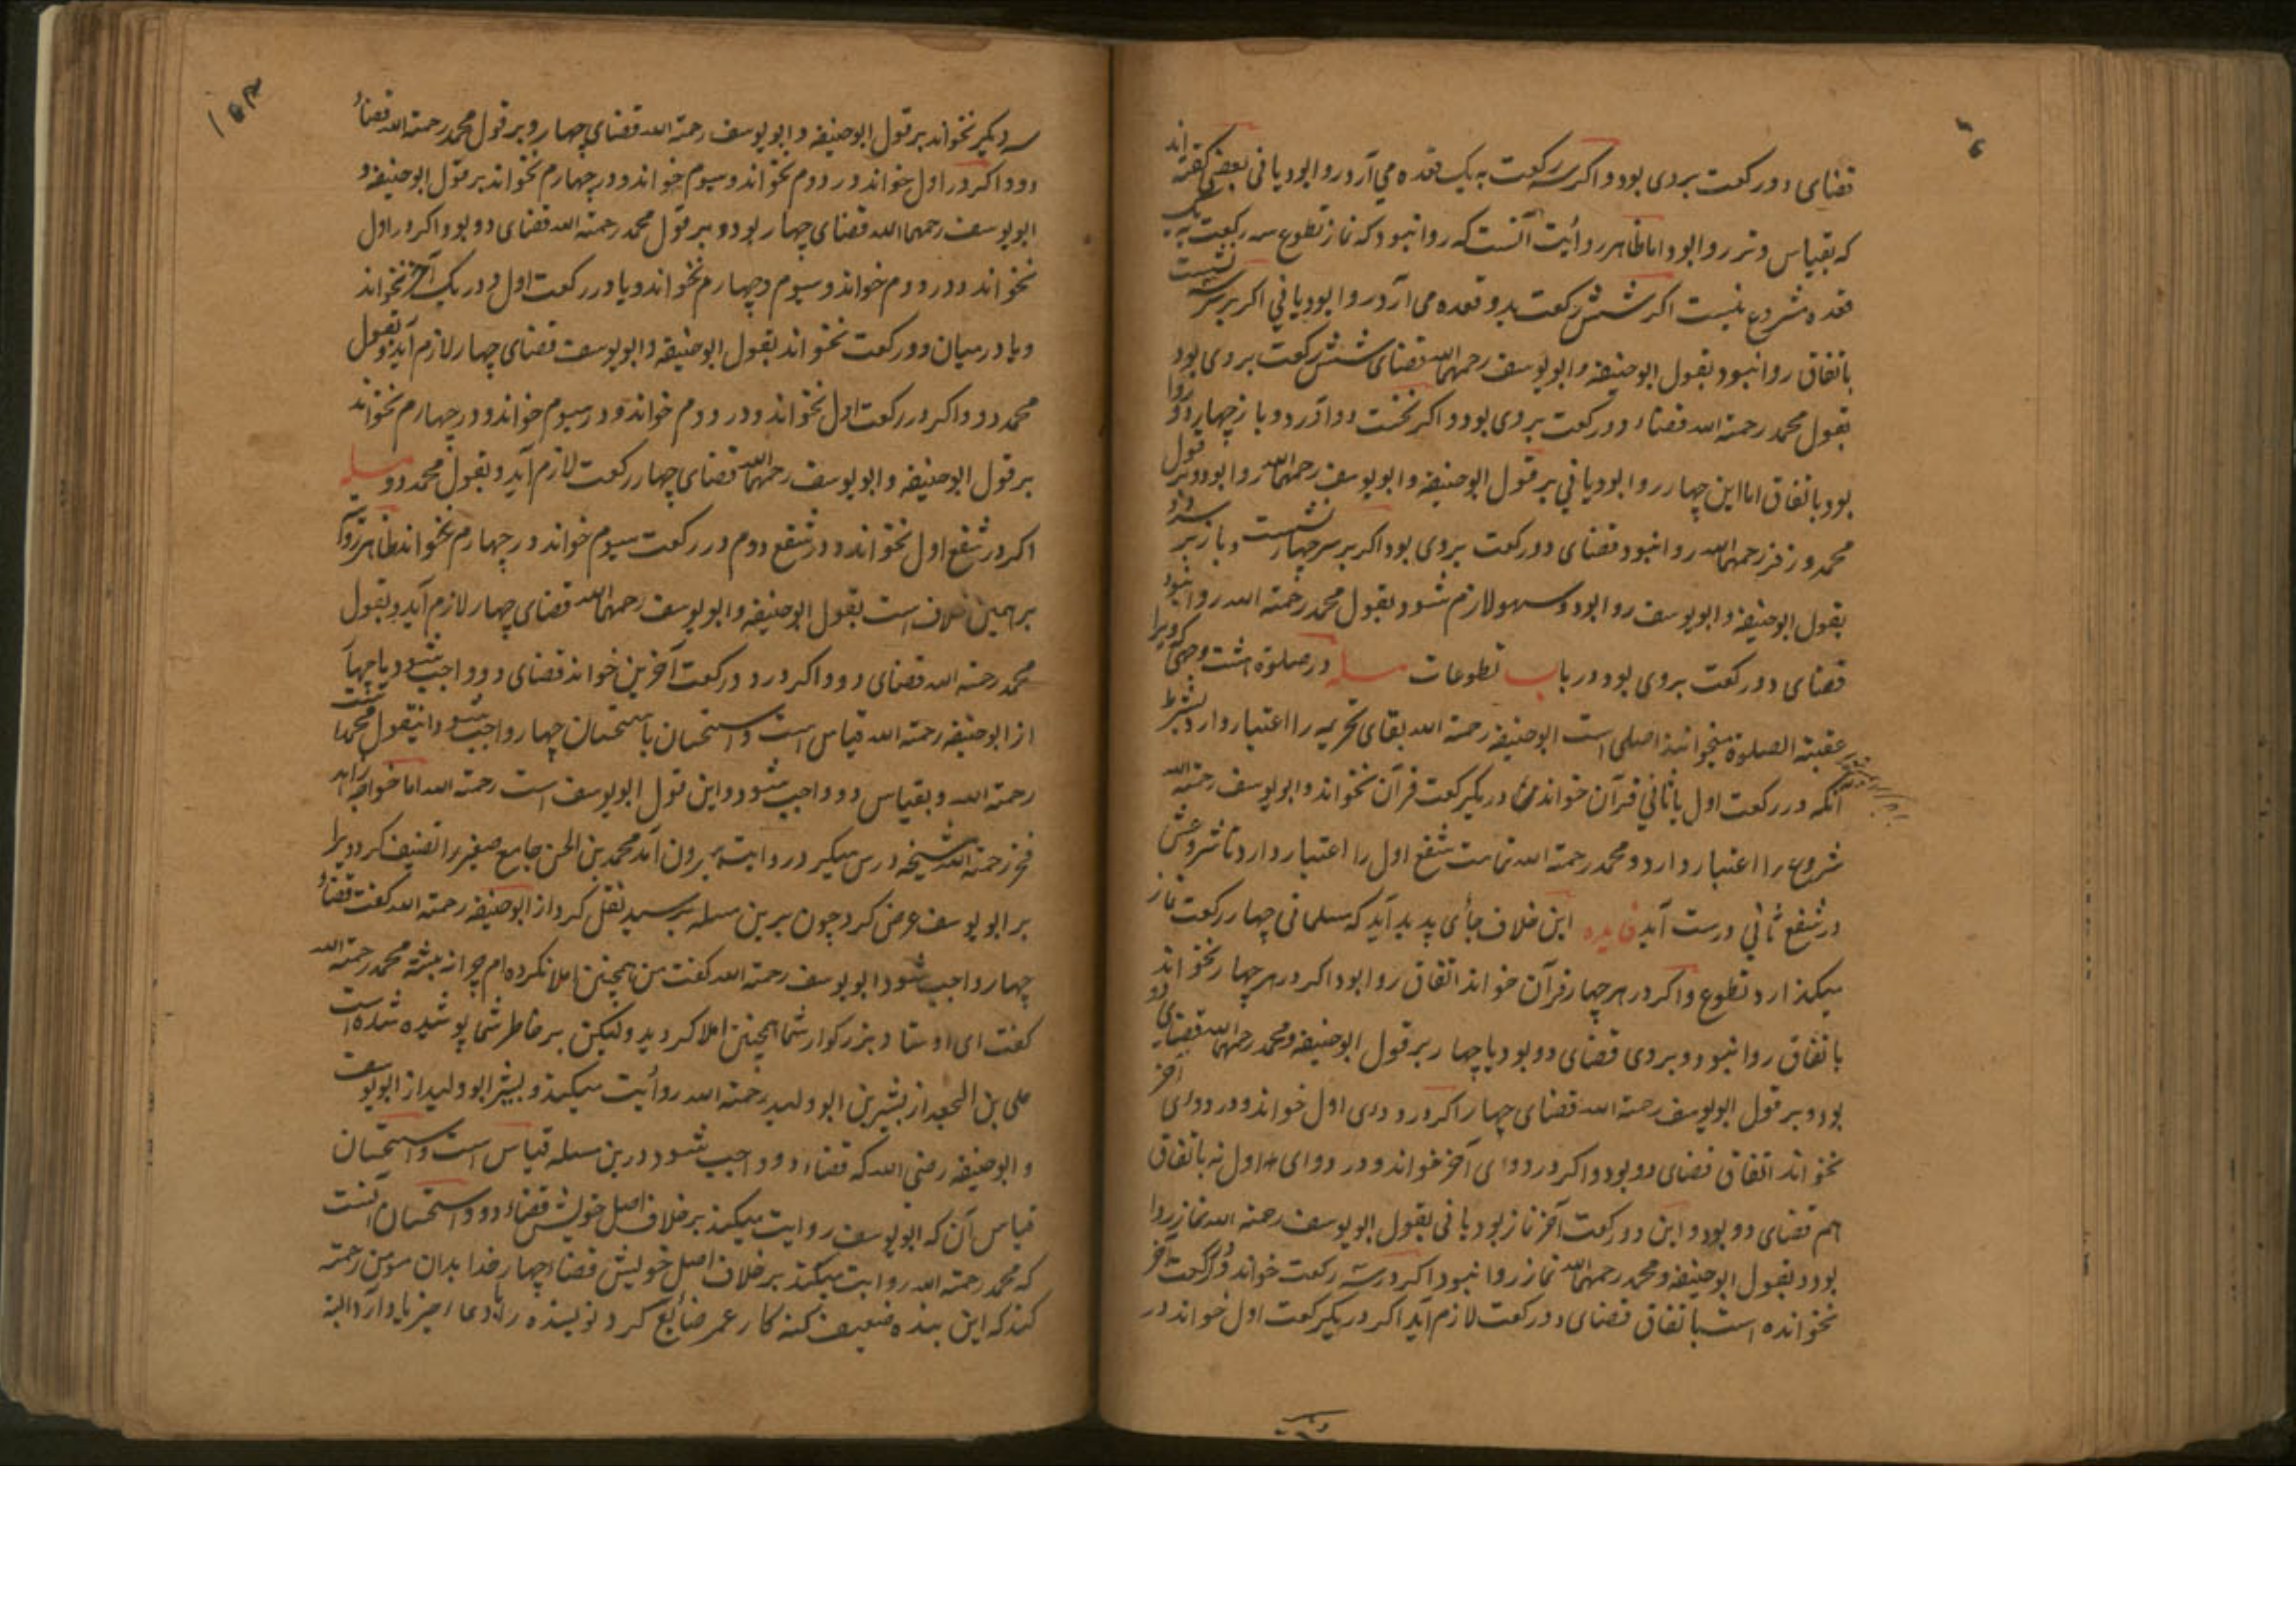 قضای دو رکعت بروی بود و اگر سه رکعت به یک قعده می آرد روا بود یا نی بعضی گفته اند
که بقیاس وتر روا بود اما ظاهر روایت آنست که روا نبود که نماز تطوع سه رکعت به یک
قعده مشروع نیست اگر شش رکعت بدو قعده می آرد روا بود یا نی اگر بر سر سه نشست
باتفاق روا نبود بقول ابوحنیفه و ابویوسف رحمهما الله قضای شش رکعت بروی بود
بقول محمد رحمة الله قضاء دو رکعت بروی بود و اگر نخست دو آرد و باز چهار دو روا
بود باتفاق اما این چهار روا بود یا نی بر قول ابوحنیفه و ابویوسف رحمهما الله روا بود و بر قول
محمد و زفر رحمهما الله روا نبود و قضای دو رکعت بروی بود اگر بر سر چهار نشست و باز بر
بقول ابوحنیفه و ابویوسف روا بود و سهو لازم شود و بقول محمد رحمة الله روا نبود
قضای دو رکعت بروی بود در باب تطوعات مسله در صلوة هشت وجهی که ویرا
عقبة الصلوة میخوانند اصلی است ابوحنیفه رحمة الله بقای تحریمه را اعتبار دارد بشرط
آنکه در رکعت اول یا ثانی قرآن خواند در یک رکعت قرآن نخواند و ابویوسف رحمة الله
شروع را اعتبار دارد و محمد رحمة الله تمامت شفع اول را اعتبار دارد تا شروعش
در شفع ثانی درست آید فایده این خلاف جأی پدید آید که مسلمانی چهار رکعت نماز
میگذارد تطوع و اگر در هر چهار قرآن خواند اتفاق روا بود اگر در هر چهار نخواند
باتفاق روا نبود و بروی قضای دو بود یا چهار بر قول ابوحنیفه و محمد رحمهما الله قضای دو
بود و بر قول ابویوسف رحمة الله قضای چهار اگر در دوی اول خواند و در دوای آخر
نخواند اتفاق قضای دو بود و اگر در دوای آخر خواند و در دوای اول نه باتفاق
هم قضای دو بود و این دو رکعت آخر نماز بود یا نی بقول ابویوسف رحمة الله نماز روا
بود و بقول ابوحنیفه و محمد رحمهما الله نماز روا نبود اگر در سه رکعت خواند و در رکعت آخر
نخوانده است باتفاق قضای دو رکعت لازم آید اگر در یک رکعت اول خواند در
سه دیگر نخواند بر قول ابوحنیفه و ابویوسف رحمة الله قضای چهار و بر قول محمد رحمة الله قضاء
دو و اگر در اول خواند در دوم نخواند و سیوم خواند و در چهارم نخواند بر قول ابوحنیفه و
ابویوسف رحمهما الله قضای چهار بود و بر قول محمد رحمة الله قضای دو بود و اگر در اول
نخواند و در دوم خواند و سیوم و چهارم نخواند و یا در رکعت اول و در یک آخر نخواند
و یا در میان دو رکعت نخواند بقول ابوحنیفه و ابویوسف قضای چهار لازم آید و بقول
محمد دو و اگر در رکعت اول نخواند و در دوم خواند و در سیوم خواند و در چهارم نخواند
بر قول ابوحنیفه و ابویوسف رحمهما الله قضای چهار رکعت لازم آید و بقول محمد دو مسله
اگر در شفع اول نخواند و در شفع دوم در رکعت سیوم خواند در چهارم نخواند ظاهر
برهمین خلاف است بقول ابوحنیفه و ابویوسف رحمهما الله قضای چهار لازم آید و بقول
محمد رحمة الله قضای دو و اگر در دو رکعت آخرین خواند قضای دو واجب شود یا چهار
از ابوحنیفه رحمة الله قیاس است و استحسان باستحسان چهار واجب شود و اینقول محمد است
رحمة الله و بقیاس دو واجب شود و این قول ابویوسف است رحمة الله اما خواجه زاهد
فخر رحمة الله شیخه درس میگیر در روایت بیرون آمد محمد بن الحسن جامع صغیر را تصنیف کرد ویرا
بر ابویوسف عرض کرد چون برین مسله برسید نقل کرد از ابوحنیفه رحمة الله گفت قضاء
چهار واجب شود ابویوسف رحمة الله گفت من همچنین املا نکرده ام چرا نبشته محمد رحمة الله
گفت ای اوستاد بزرگوار شما همچنین املا کردید ولیکن بر خاطر شما پوشیده شده است
علی بن الجعد از بشیر بن ابو ولید رحمة الله روأیت میکند و بشیر ابو ولید از ابویوسف
و ابوحنیفه رضی الله که قضاء دو واجب شود درین مسله قیاس است و استحسان
قیاس آن که ابویوسف روایت میکند بر خلاف اصل خویش قضاء دو و استحسان آنست
که محمد رحمة الله روایت میکند بر خلاف اصل خویش قضاء چهار خدا بدان مومن رحمة
کند که این بنده ضعیف کنه کار عمر ضائع کرد نویسنده را بدعا خیر یاد آرد البته